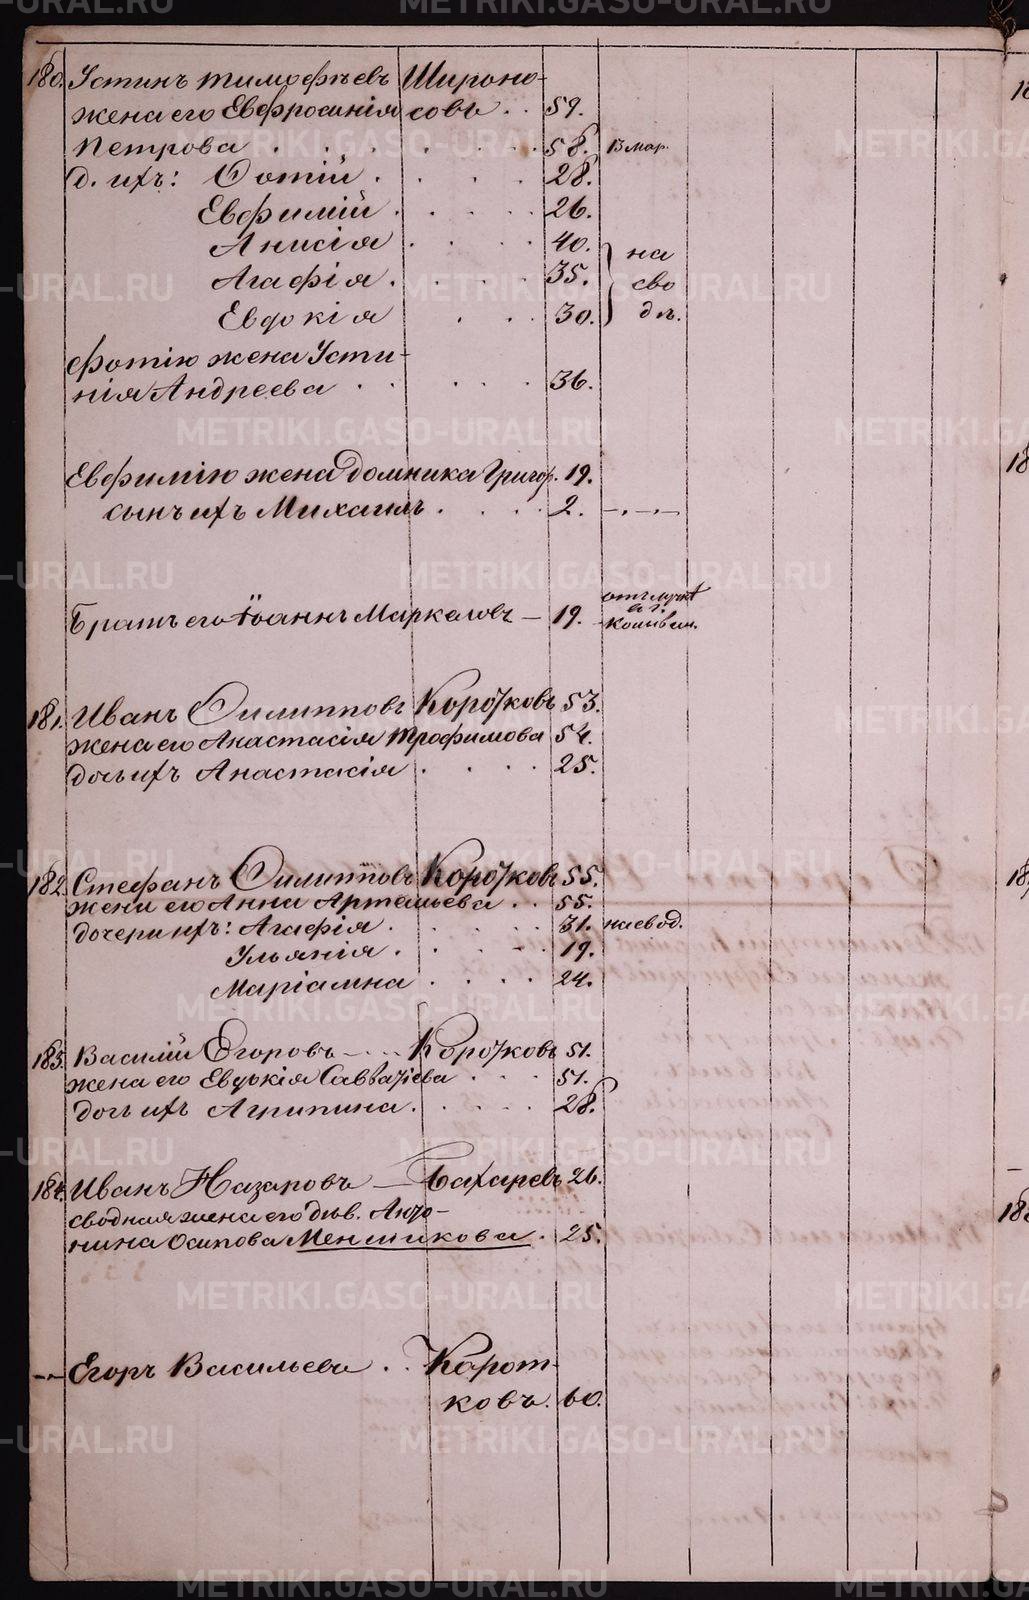 180. Устинъ Тимофѣевъ Широно-
жена его Евфросинія совъ . . 59.
Петрова . . . . . . . 58. 
д. ихъ: Фотій . . . . 28.
Евфимій . . . . . 26.
Анисія . . . . 40. на
Агафія . . . . . 35. сво
Евдокія . . . 30. дѣ.
Фотію жена Усти-
нія Андреева . . . . . 36.
Евфимію жена Домника Григор. 19.
сынъ ихъ Михаилъ . . . . 2. —.—.—
Братъ его Іоаннъ Маркеловъ — 19.
181. Иванъ Филипповъ Коротковъ 53.
жена его Анастасія Трофимова 54.
дочь ихъ Анастасія . . . . 25.
182. Стефанъ Филипповъ Коротковъ 55.
жена его Анна Артемьева . . 55.
дочери ихъ: Агафія . . . . . 31. на свод.
Ульянія . . . . . 19.
Маріамна . . . . 24.
183. Василій Егоровъ —..— Коротковъ 51.
жена его Евдокія Савватіева . . . 51.
дочь ихъ Агрипина . . . . . 28.
184. Иванъ Назаровъ — Бахаревъ 26.
сводная жена его дѣв. Анто-
нина Осипова Меншикова . 25.
—„— Егоръ Васильевъ . . Корот-
ковъ. 60.
METRIKI.GASO-URAL.RU